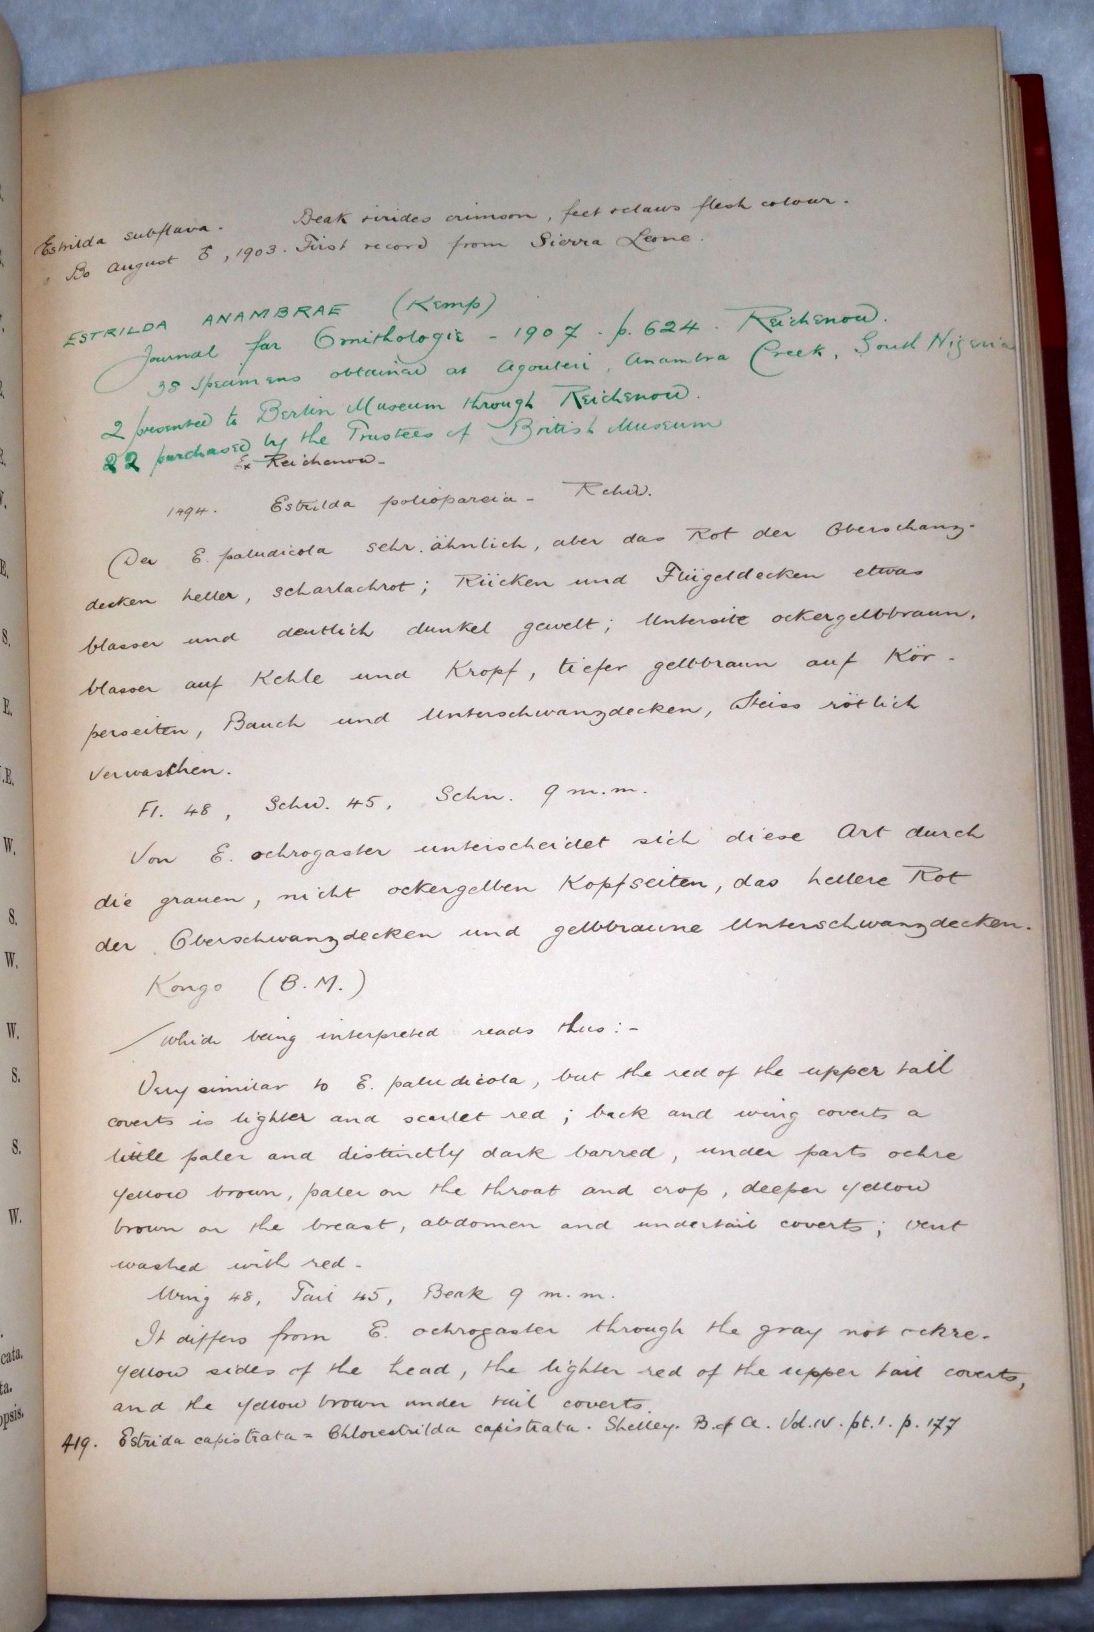 Estrilda subflava. Beak & irides crimson, feet & claws flesh colour.
Bo August 8, 1903. First record from Sierra Leone.
ESTRILDA ANAMBRAE (Kemp)
Journal für Ornithologie - 1907 - p. 624. Reichenow.
38 specimens obtained at Agouleri, Anambra Creek, South Nigeria
2 presented to Berlin Museum through Reichenow.
22 purchased by the Trustees of British Museum
Ex Reichenow -
1494. Estrilda poliopareia - Rchw.
Der E. paludicola sehr ähnlich, aber das Rot der Oberschanz-
decken heller, scharlachrot; Rücken und Flügeldecken etwas
blasser und deutlich dunkel gewelt; Untersite ockergelbbraun,
blasser auf Kehle und Kropf, tiefer gelbbraun auf Kör-
perseiten, Bauch und Unterschwanzdecken, Steiss rötlich
verwaschen.
Fl. 48, Schw. 45, Schn. 9 m.m.
Von E. ochrogaster unterscheidet sich diese Art durch
die grauen, nicht ockergelben Kopfseiten, das hellere Rot
der Oberschwanzdecken und gelbbraune Unterschwanzdecken.
Kongo (B.M.)
Which being interpreted reads thus:-
Very similar to E. paludicola, but the red of the upper tail
coverts is lighter and scarlet red; back and wing coverts a
little paler and distinctly dark barred, under parts ochre
yellow brown, paler on the throat and crop, deeper yellow
brown on the breast, abdomen and undertail coverts; vent
washed with red.
Wing 48, Tail 45, Beak 9 m.m.
It differs from E. ochrogaster through the gray not ockre-
yellow sides of the head, the lighter red of the upper tail coverts,
and the yellow brown under tail coverts.
419. Estrida capistrata = Chlorestrilda capistrata. Shelley. B. of A. Vol. IV. pt. 1. p. 177
E.
S.
E.
W.
S.
W.
W.
S.
S.
W.
cata.
ta.
opsis.